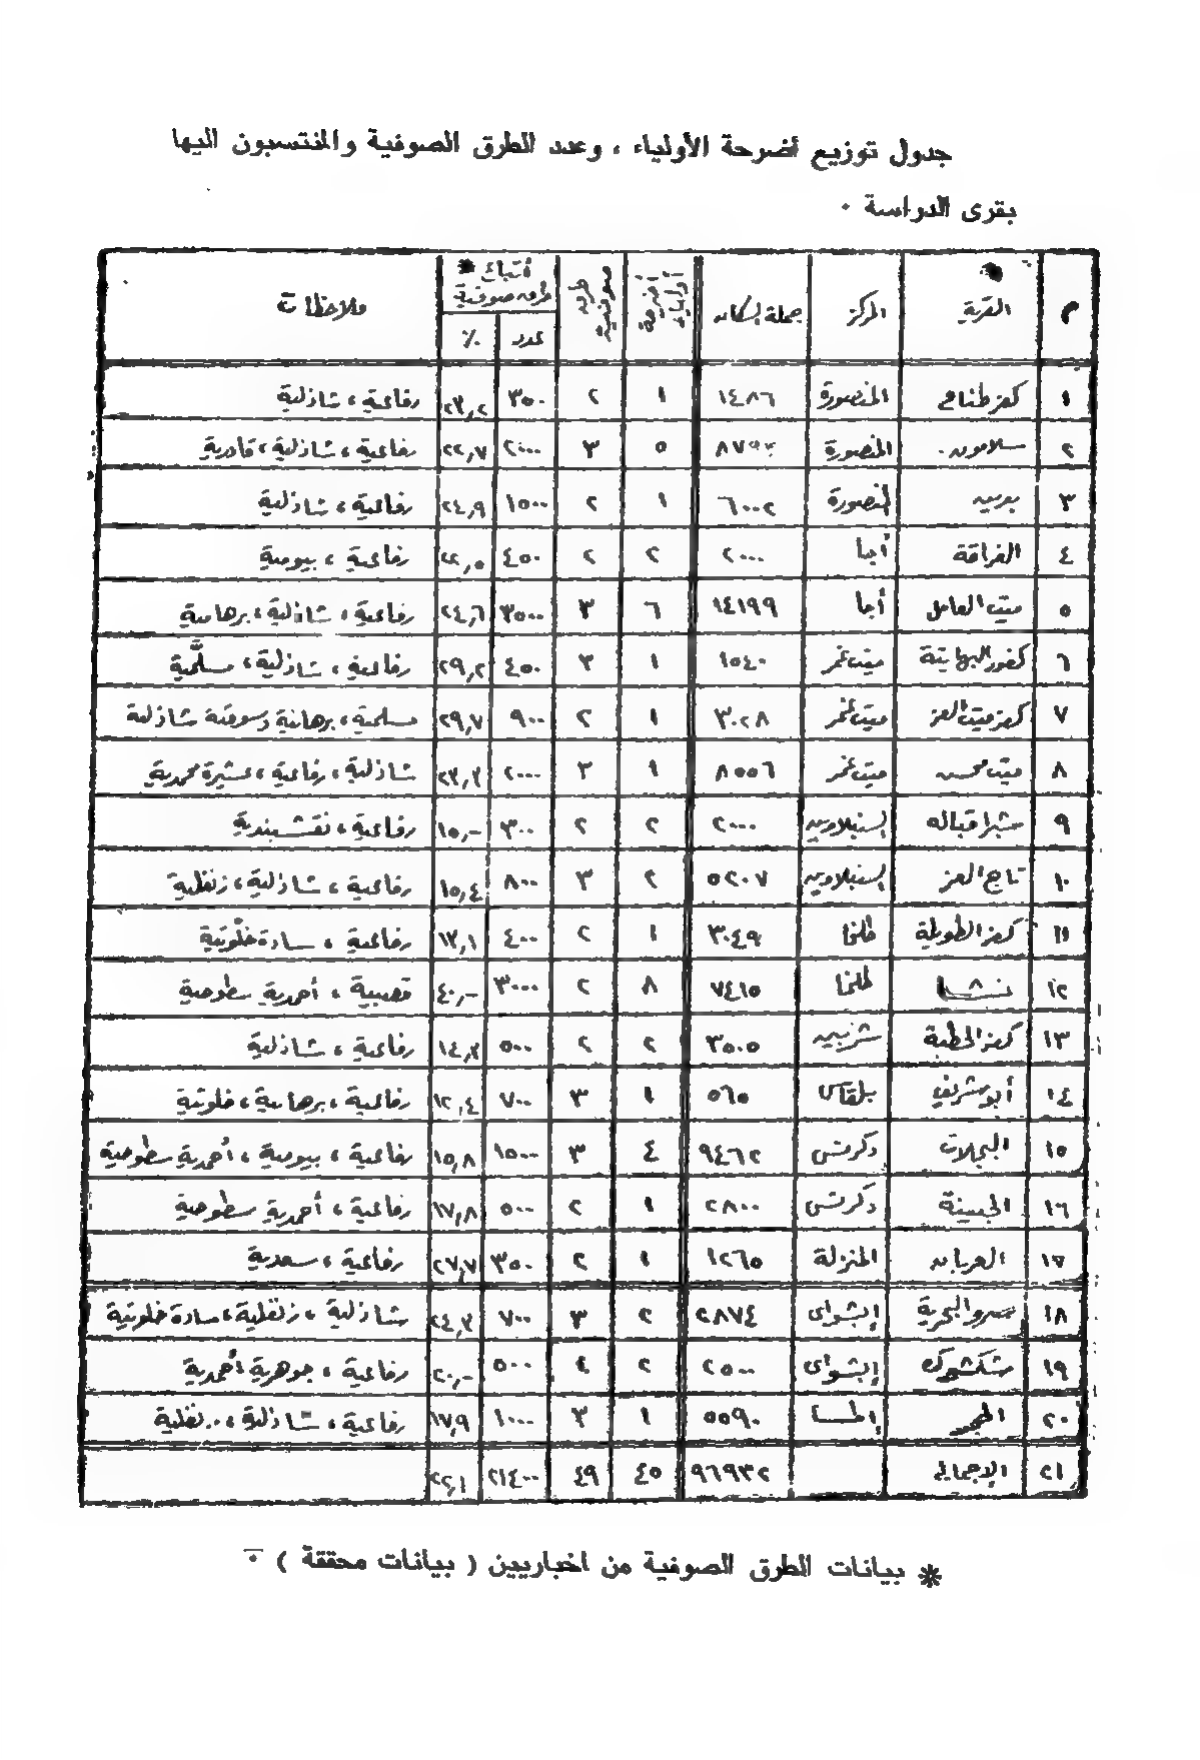 جدول توزيع أضرحة الأولياء ، وعدد الطرق الصوفية والمنتسبون اليها
بقرى الدراسة ٠
م القرية * المركز جملة السكان أضرحة أولياء طرق صوفية أتباع * طرق صوفية عدد ٪ ملاحظات
١ كفر طناح المنصورة ١٤٨٦ ١ ٢ ٣٥٠ ٢٣,٢ رفاعية ، شاذلية
٢ سلامون المنصورة ٥ ٣ ٢٠٠٠ ٢٢,٧ رفاعية ، شاذلية ، قادرية
٣ بدين المنصورة ٦٠٠٢ ١ ٢ ١٥٠٠ ٢٤,٩ رفاعية ، شاذلية
٤ الغراقة أجا ٢٠٠٠ ٢ ٢ ٤٥٠ ٢٢,٥ رفاعية ، بيومية
٥ ميت العامل أجا ١٤١٩٩ ٦ ٣ ٣٥٠٠ ٢٤,٦ رفاعية ، شاذلية ، برهامية
٦ كفور البهايتة ميت غمر ١٥٤٠ ١ ٣ ٤٥٠ ٢٩,٢ رفاعية ، شاذلية ، مسلَّمية
٧ كفر ميت العز ميت غمر ٣٠٢٨ ١ ٢ ٩٠٠ ٢٩,٧ مسلمية ، برهانية دسوقية شاذلية
٨ ميت محسن ميت غمر ٨٥٥٦ ١ ٣ ٢٠٠٠ ٢٣,٣ شاذلية ، رفاعية ، عشيرة محمدية
٩ شبرا قباله السنبلاوين ٢٠٠٠ ٢ ٢ ٣٠٠ ١٥,- رفاعية ، نقشبندية
١٠ تاج العز السنبلاوين ٥٢٠٧ ٢ ٣ ٨٠٠ ١٥,٤ رفاعية ، شاذلية ، زنفلية
١١ كفر الطويلة طلخا ٣٠٤٩ ١ ٢ ٤٠٠ ١٣,١ رفاعية ، سادة خلوتية
١٢ نشا طلخا ٧٤١٥ ٨ ٢ ٣٠٠٠ ٤٠,- قصبية ، أحمدية سطوحية
١٣ كفر الحطبة شربين ٣٥٠٥ ٢ ٢ ٥٠٠ ١٤,٣ رفاعية ، شاذلية
١٤ أبو شريف بلقاس ٥٦٥ ١ ٣ ٧٠٠ ١٢,٤ رفاعية ، برهامية ، خلوتية
١٥ البجلات دكرنس ٩٤٦٢ ٤ ٣ ١٥٠٠ ١٥,٨ رفاعية ، بيومية ، أحمدية سطوحية
١٦ الجنينة دكرنس ٢٨٠٠ ١ ٢ ٥٠٠ ١٧,٨ رفاعية ، أحمدية سطوحية
١٧ العربان المنزلة ١٢٦٥ ١ ٢ ٣٥٠ ٢٧,٧ رفاعية ، سعدية
١٨ سرو البحرية إبشواى ٢٨٧٤ ٢ ٣ ٧٠٠ ٢٤,٣ شاذلية ، زنفلية ، سادة خلوتية
١٩ شكشوك إبشواى ٢٥٠٠ ٢ ٥٠٠ ٢٠,- رفاعية ، جوهرية أحمدية
٢٠ إطسا ٥٥٩٠ ١ ٣ ١٠٠٠ ١٧,٩ رفاعية ، شاذلية ، زنفلية
٢١ الإجمالى ٩٦٩٣٢ ٤٥ ٤٩ ٢١٤٠٠ ٢٢,١
* بيانات الطرق الصوفية من اخباريين ( بيانات محققة ) ٠